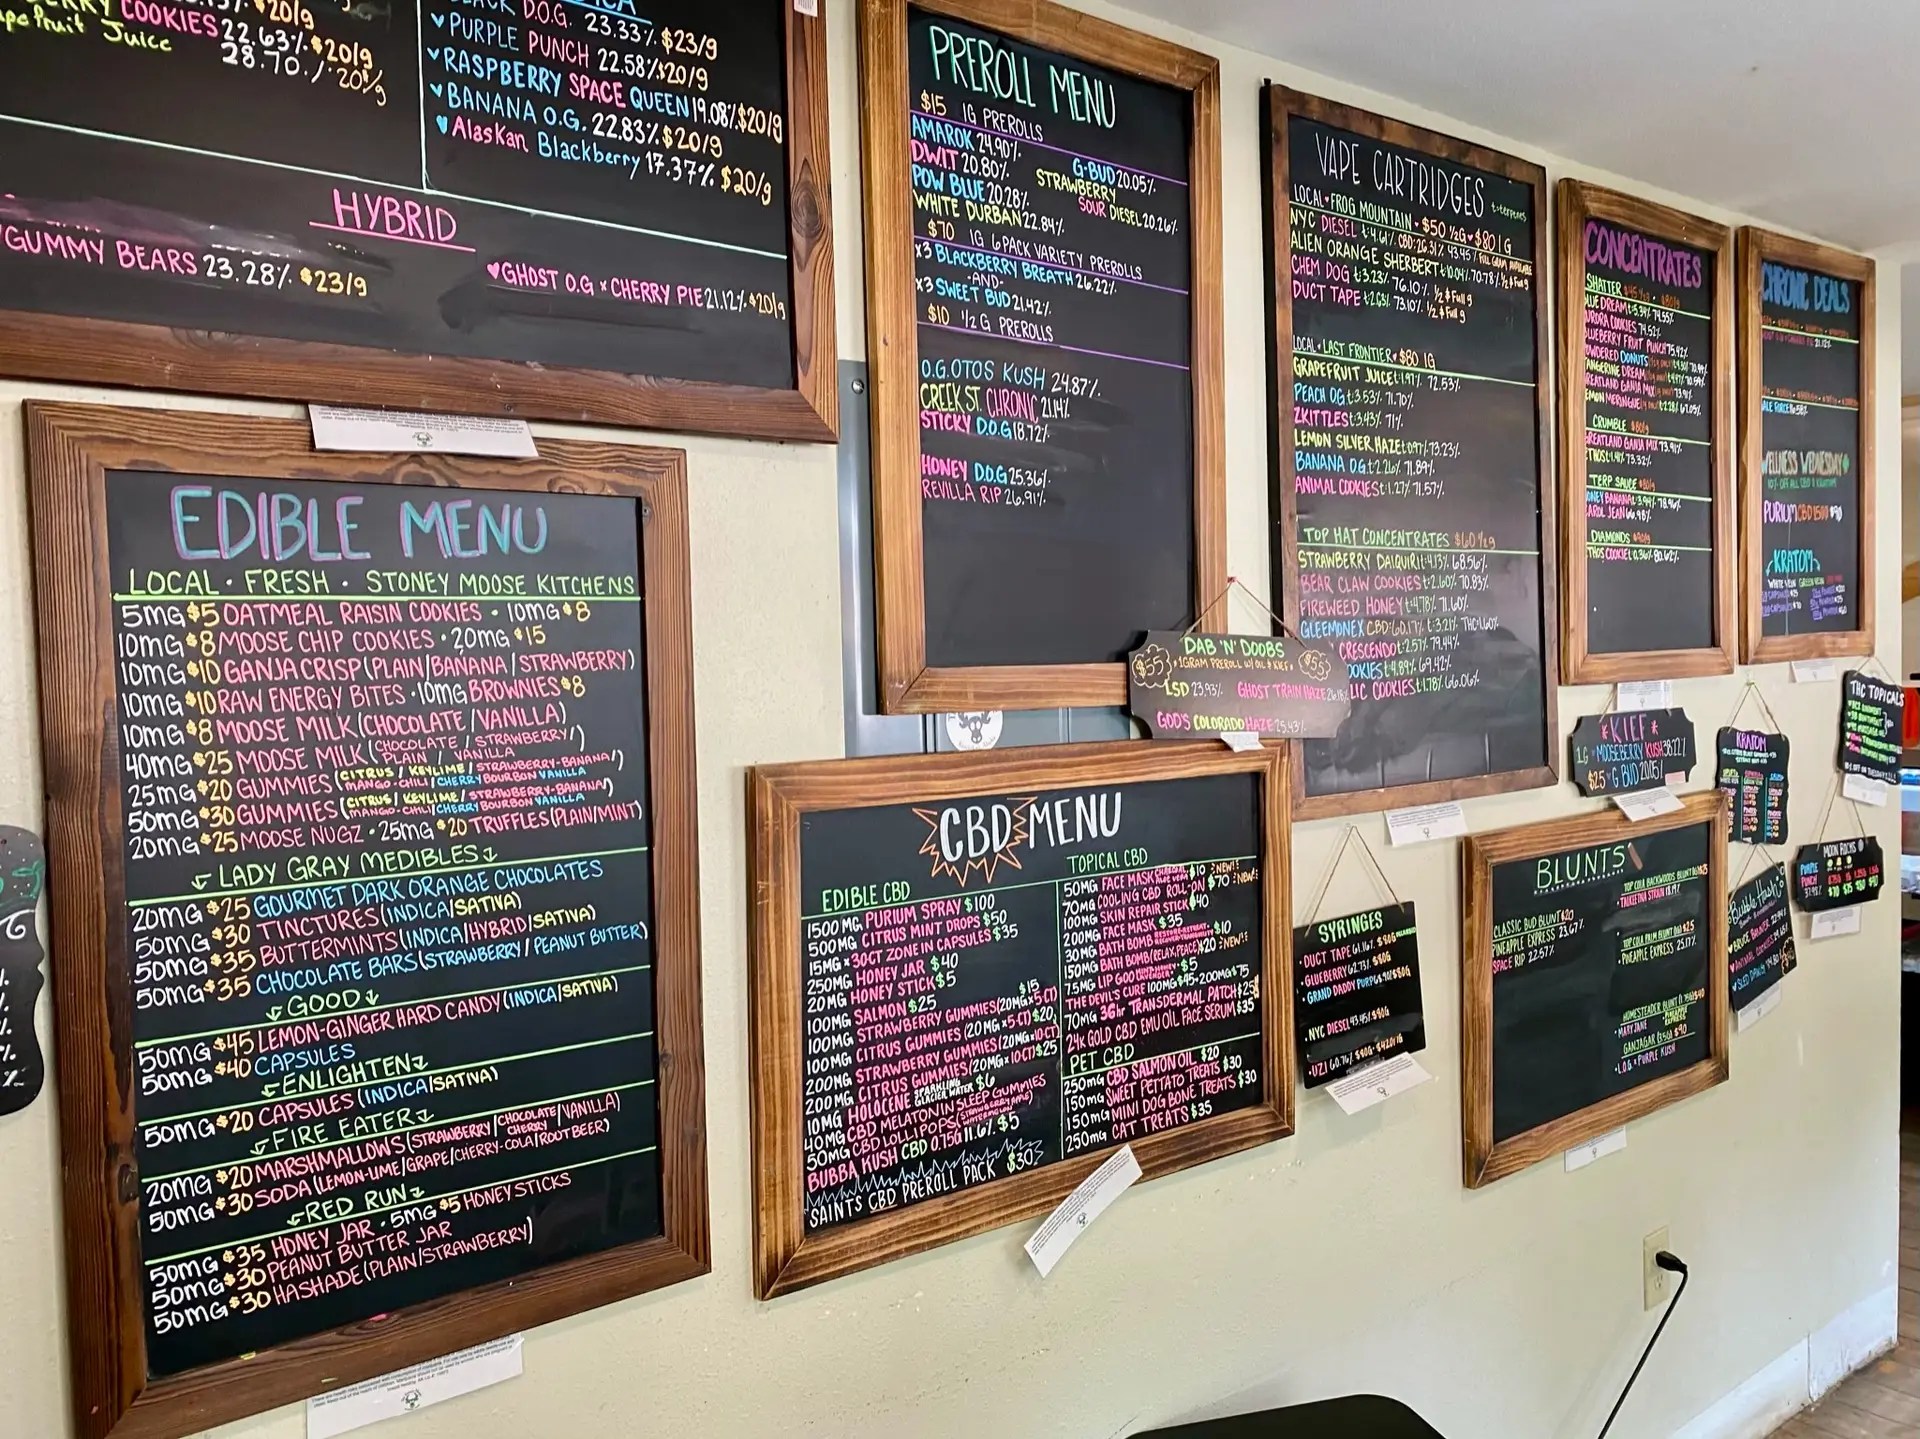 COOKIES 22.63% $20/g
Juice 28.70% 20/g
D.O.G. 23.33% $23/g
PURPLE PUNCH 22.58% $20/g
RASPBERRY SPACE QUEEN 19.08% $20/g
BANANA O.G. 22.83% $20/g
Alaskan Blackberry 17.37% $20/g
HYBRID
GUMMY BEARS 23.28% $23/g
GHOST O.G × CHERRY PIE 21.12% $20/g
EDIBLE MENU
LOCAL · FRESH · STONEY MOOSE KITCHENS
5MG $5 OATMEAL RAISIN COOKIES · 10MG $8
10MG $8 MOOSE CHIP COOKIES · 20MG $15
10MG $10 GANJA CRISP (PLAIN/BANANA/STRAWBERRY)
10MG $10 RAW ENERGY BITES · 10MG BROWNIES $8
10MG $8 MOOSE MILK (CHOCOLATE/VANILLA)
40MG $25 MOOSE MILK (CHOCOLATE/STRAWBERRY/
PLAIN/VANILLA
25MG $20 GUMMIES (CITRUS/KEYLIME/STRAWBERRY-BANANA/
MANGO-CHILI/CHERRY BOURBON VANILLA
50MG $30 GUMMIES (CITRUS/KEYLIME/STRAWBERRY-BANANA/
MANGO-CHILI/CHERRY BOURBON VANILLA
20MG $25 MOOSE NUGZ · 25MG $20 TRUFFLES (PLAIN/MINT)
LADY GRAY MEDIBLES
20MG $25 GOURMET DARK ORANGE CHOCOLATES
50MG $30 TINCTURES (INDICA/SATIVA)
50MG $35 BUTTERMINTS (INDICA/HYBRID/SATIVA)
50MG $35 CHOCOLATE BARS (STRAWBERRY/PEANUT BUTTER)
GOOD
50MG $45 LEMON-GINGER HARD CANDY (INDICA/SATIVA)
50MG $40 CAPSULES
ENLIGHTEN
50MG $20 CAPSULES (INDICA/SATIVA)
FIRE EATER
20MG $20 MARSHMALLOWS (STRAWBERRY/CHOCOLATE/VANILLA)
CHERRY
50MG $30 SODA (LEMON-LIME/GRAPE/CHERRY-COLA/ROOT BEER)
RED RUN
50MG $35 HONEY JAR · 5MG $5 HONEY STICKS
50MG $30 PEANUT BUTTER JAR
50MG $30 HASHADE (PLAIN/STRAWBERRY)
PREROLL MENU
$15 1G PREROLLS
AMAROK 24.90%
D.W.I.T 20.80%
POW BLUE 20.28%
WHITE DURBAN 22.84%
G-BUD 20.05%
STRAWBERRY
SOUR DIESEL 20.26%
$70 1G 6 PACK VARIETY PREROLLS
x3 BLACKBERRY BREATH 26.22%
-AND-
x3 SWEET BUD 21.42%
$10 1/2 G PREROLLS
O.G.OTOS KUSH 24.87%
CREEK ST. CHRONIC 21.14%
STICKY D.O.G 18.72%
HONEY D.O.G 25.36%
REVILLA RIP 26.91%
DAB 'N' DOOBS
$55 1 GRAM PREROLL W/ OIL & KIEF $55
LSD 23.93% GHOST TRAIN HAZE
GOD'S COLORADO HAZE 25.43%
CBD MENU
EDIBLE CBD
1500 MG PURIUM SPRAY $100
500MG CITRUS MINT DROPS $50
15MG × 30CT ZONE IN CAPSULES $35
250MG HONEY JAR $40
20MG HONEY STICK $5
100MG SALMON $25
100MG STRAWBERRY GUMMIES (20MG×5CT) $15
100MG CITRUS GUMMIES (20MG×5-CT) $20
200MG STRAWBERRY GUMMIES (20MG×10-CT)
200MG CITRUS GUMMIES (20MG×10CT) $25
10MG HOLOCENE SPARKLING GLACIER WATER $6
40MG CBD MELATONIN SLEEP GUMMIES
50MG CBD LOLLIPOPS
BUBBA KUSH CBD 0.75G 11.6% $5
SAINTS CBD PREROLL PACK $30
TOPICAL CBD
50MG FACE MASK $10 NEW!
70MG COOLING CBD ROLL-ON $70 NEW!
100MG SKIN REPAIR STICK $40
200MG FACE MASK $35
30MG BATH BOMB $10
150MG BATH BOMB (RELAX, PEACE) $20 NEW!
75MG LIP GOO $5
THE DEVIL'S CURE 100MG $45 · 200MG $75
70MG 36hr TRANSDERMAL PATCH $25
24K GOLD CBD EMU OIL FACE SERUM $35
PET CBD
250MG CBD SALMON OIL $20
150MG SWEET PETTATO TREATS $30
150MG MINI DOG BONE TREATS $30
250MG CAT TREATS $35
VAPE CARTRIDGES
LOCAL · FROG MOUNTAIN · $50 1/2G · $80 1G
NYC DIESEL t:4.61% CBD:26.31% 43.45% FULL GRAM AVAILABLE
ALIEN ORANGE SHERBERT t:10.04% 70.78% 1/2 & Full g
CHEM DOG t:3.23% 76.10% 1/2 & Full g
DUCT TAPE t:2.63% 73.10% 1/2 & Full g
LOCAL · LAST FRONTIER · $80 1G
GRAPEFRUIT JUICE t:1.97% 72.53%
PEACH OG t:3.53% 71.70%
ZKITTLES t:3.43% 71%
LEMON SILVER HAZE t:0.97% 73.23%
BANANA OG t:2.26% 71.89%
ANIMAL COOKIES t:1.27% 71.57%
TOP HAT CONCENTRATES $60 1/2g
STRAWBERRY DAIQUIRI t:4.13% 68.56%
BEAR CLAW COOKIES t:2.60% 70.83%
FIREWEED HONEY t:4.78% 71.60%
GLEEMONEX CBD:60.17% t:3.21% THC:1.60%
CRESCENDO t:2.57% 79.44%
OOKIES t:4.89% 69.42%
LIC COOKIES t:1.78% 66.06%
CONCENTRATES
SHATTER
BLUE DREAM 74.55%
COOKIES 74.52%
BLUEBERRY FRUIT PUNCH 75.42%
POWDERED DONUTS
TANGERINE DREAM
GREATLAND GANJA MIX
LEMON MERINGUE
CRUMBLE
GREATLAND GANJA MIX 73.91%
73.32%
TERP SAUCE
HONEY BANANA 78.96%
CAROL JEAN 66.98%
DIAMONDS
COOKIE 80.62%
CHRONIC DEALS
WELLNESS WEDNESDAY
10% OFF ALL CBD & KRATOM
PURIUM CBD 1500 $90
KRATOM
WHITE VEIN GREEN VEIN
*KIEF*
1G MOOSEBERRY KUSH 38.72%
$25 G BUD 20.05%
SYRINGES
DUCT TAPE 61.16% $90G
GLUEBERRY 62.73% $90G
GRAND DADDY PURP
NYC DIESEL 43.45% $90G
UZI 60.76%
BLUNTS
CLASSIC BUD BLUNT $20
PINEAPPLE EXPRESS 23.67%
SPACE RIP 22.57%
TOP COLA BACKWOODS BLUNT
TALKEETNA STRAIN
TOP COLA PALM BLUNT $25
PINEAPPLE EXPRESS 25.17%
HOMESTEADER BLUNT
MARY JANE
PINEAPPLE EXPRESS
GANJAGAR $90
PURPLE KUSH
KRATOM
THC TOPICALS
MOON ROCKS
PURPLE PUNCH
Bubble Hash
BRUCE BANNER
ANIMAL COOKIES